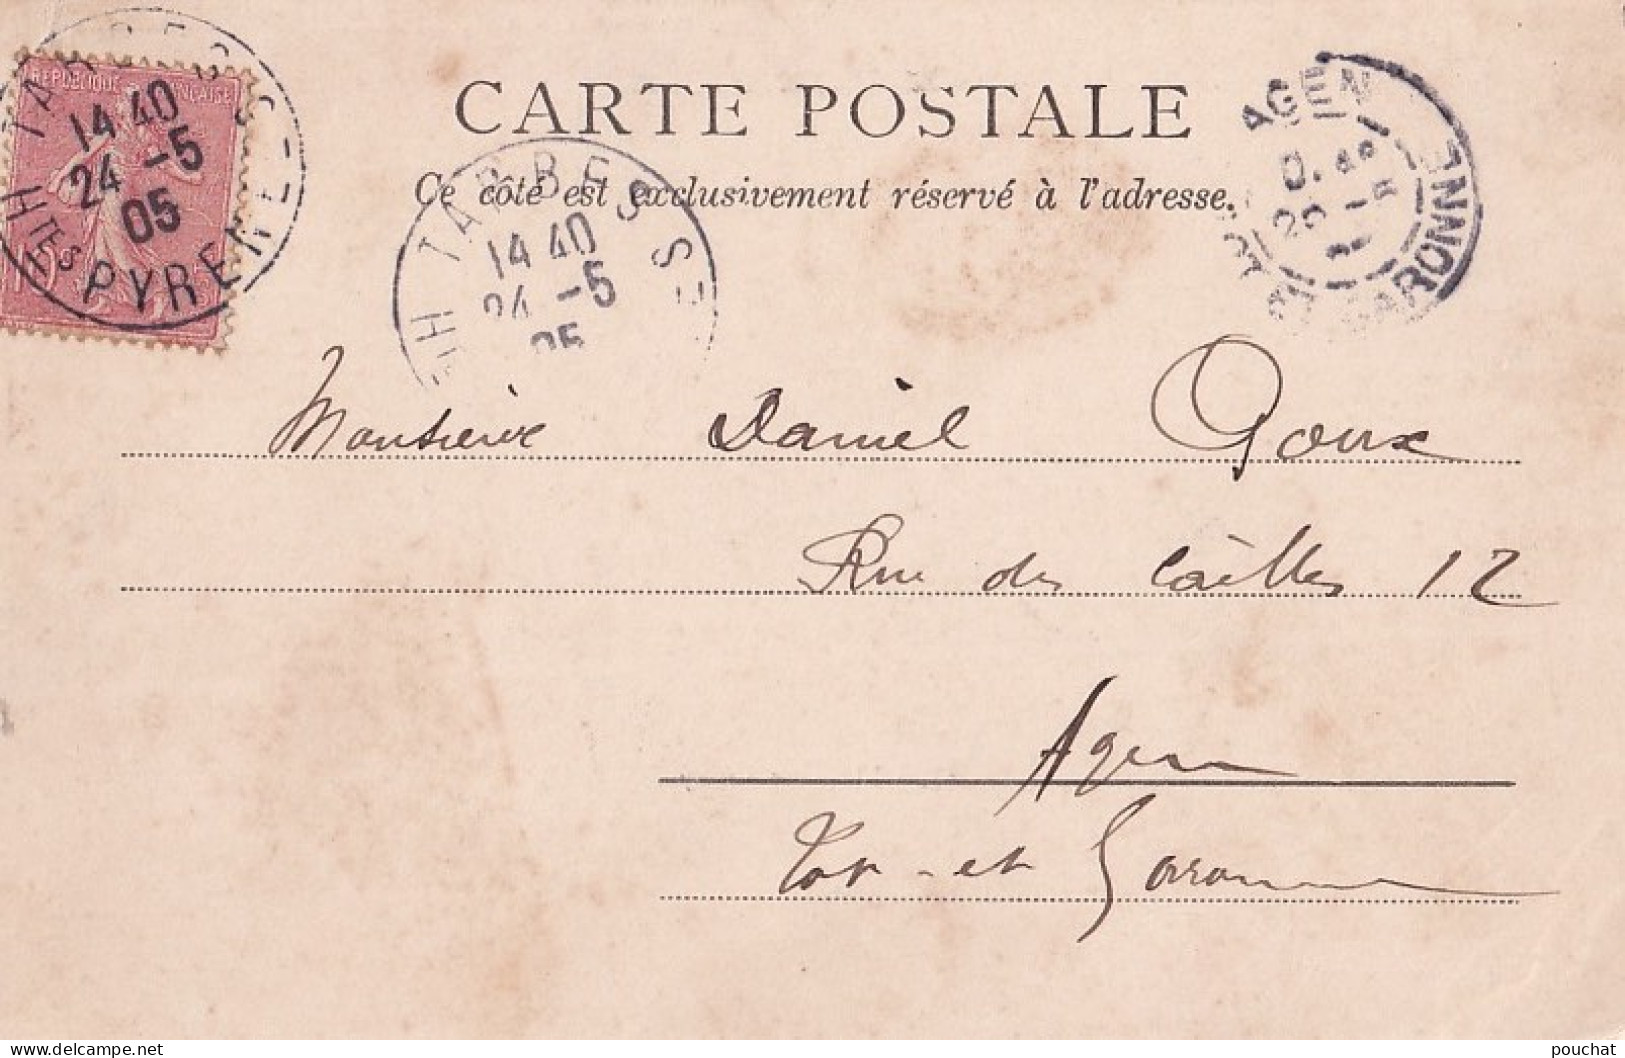 REPUBLIQUE FRANÇAISE
TARBES
14 40
24 -5
05
HTES PYRENE-
CARTE POSTALE
Ce côté est exclusivement réservé à l'adresse.
TARBES
14 40
24 -5
05
AGEN
GARONNE
Monsieur Daniel Goux
Rue des Cailles 12
Agen
Lot-et Garonne
pouchat